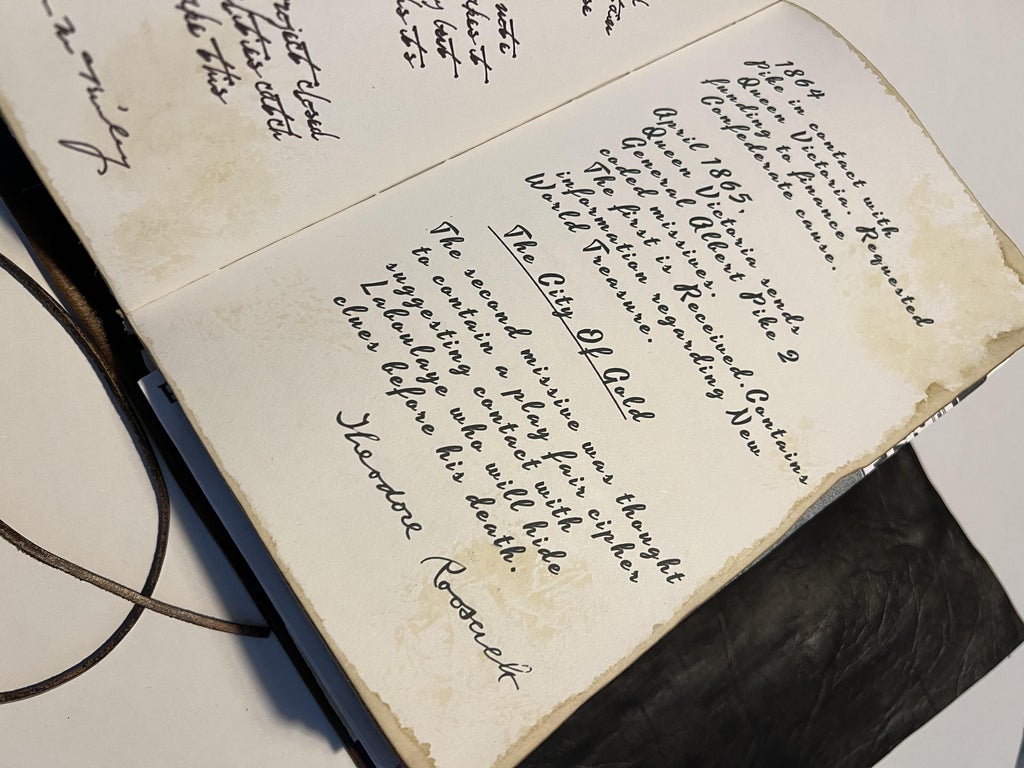 but
project closed
catch
this
1864
Pike in contact with
Queen Victoria. Requested
funding to finance
Confederate cause.
April 1865,
Queen Victoria sends
General Albert Pike 2
coded missives.
The first is Received. Contains
information regarding New
World Treasure.
The City Of Gold
The second missive was thought
to contain a play fair cipher
suggesting contact with
Laboulaye who will hide
clues before his death.
Theodore Roosevelt